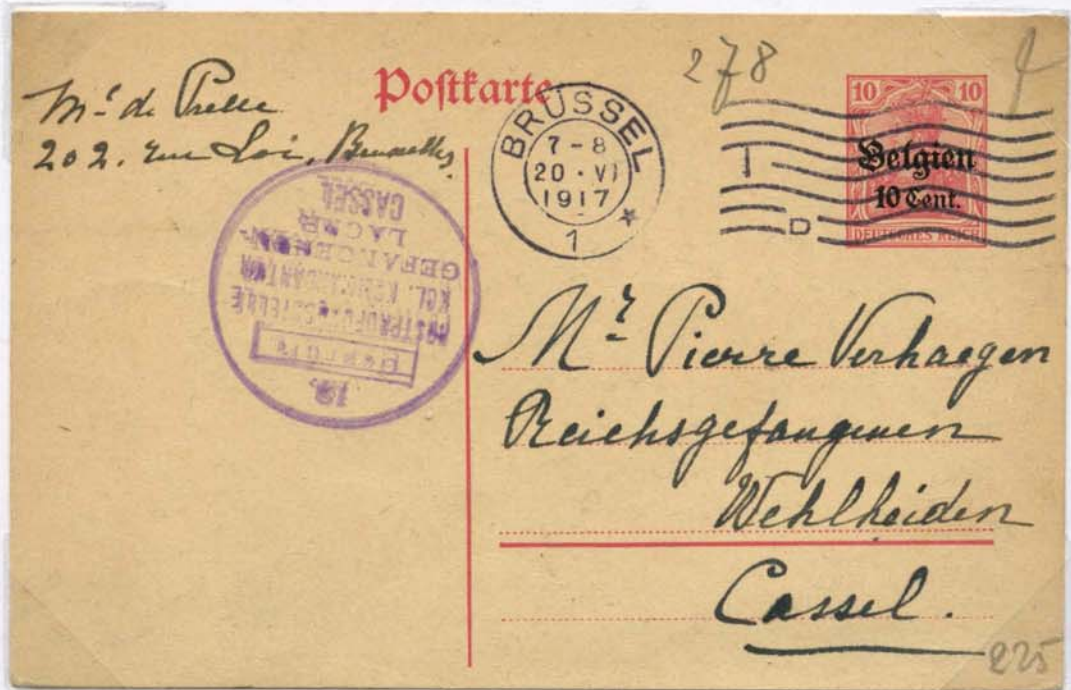 Mr de Prelle
202. rue Loi, Bruxelles.
Postkarte
278
BRÜSSEL
7-8
20 · VI
1917
1
*
D
10 10
Belgien
10 Cent.
DEUTSCHES REICH
19.
Geprüft
POSTPRÜFUNGSSTELLE
KGL. KOMMANDANTUR
GEFANGENEN-
LAGER
CASSEL
Mr Pierre Verhaegen
Reichsgefangenen
Wehlheiden
Cassel.
225